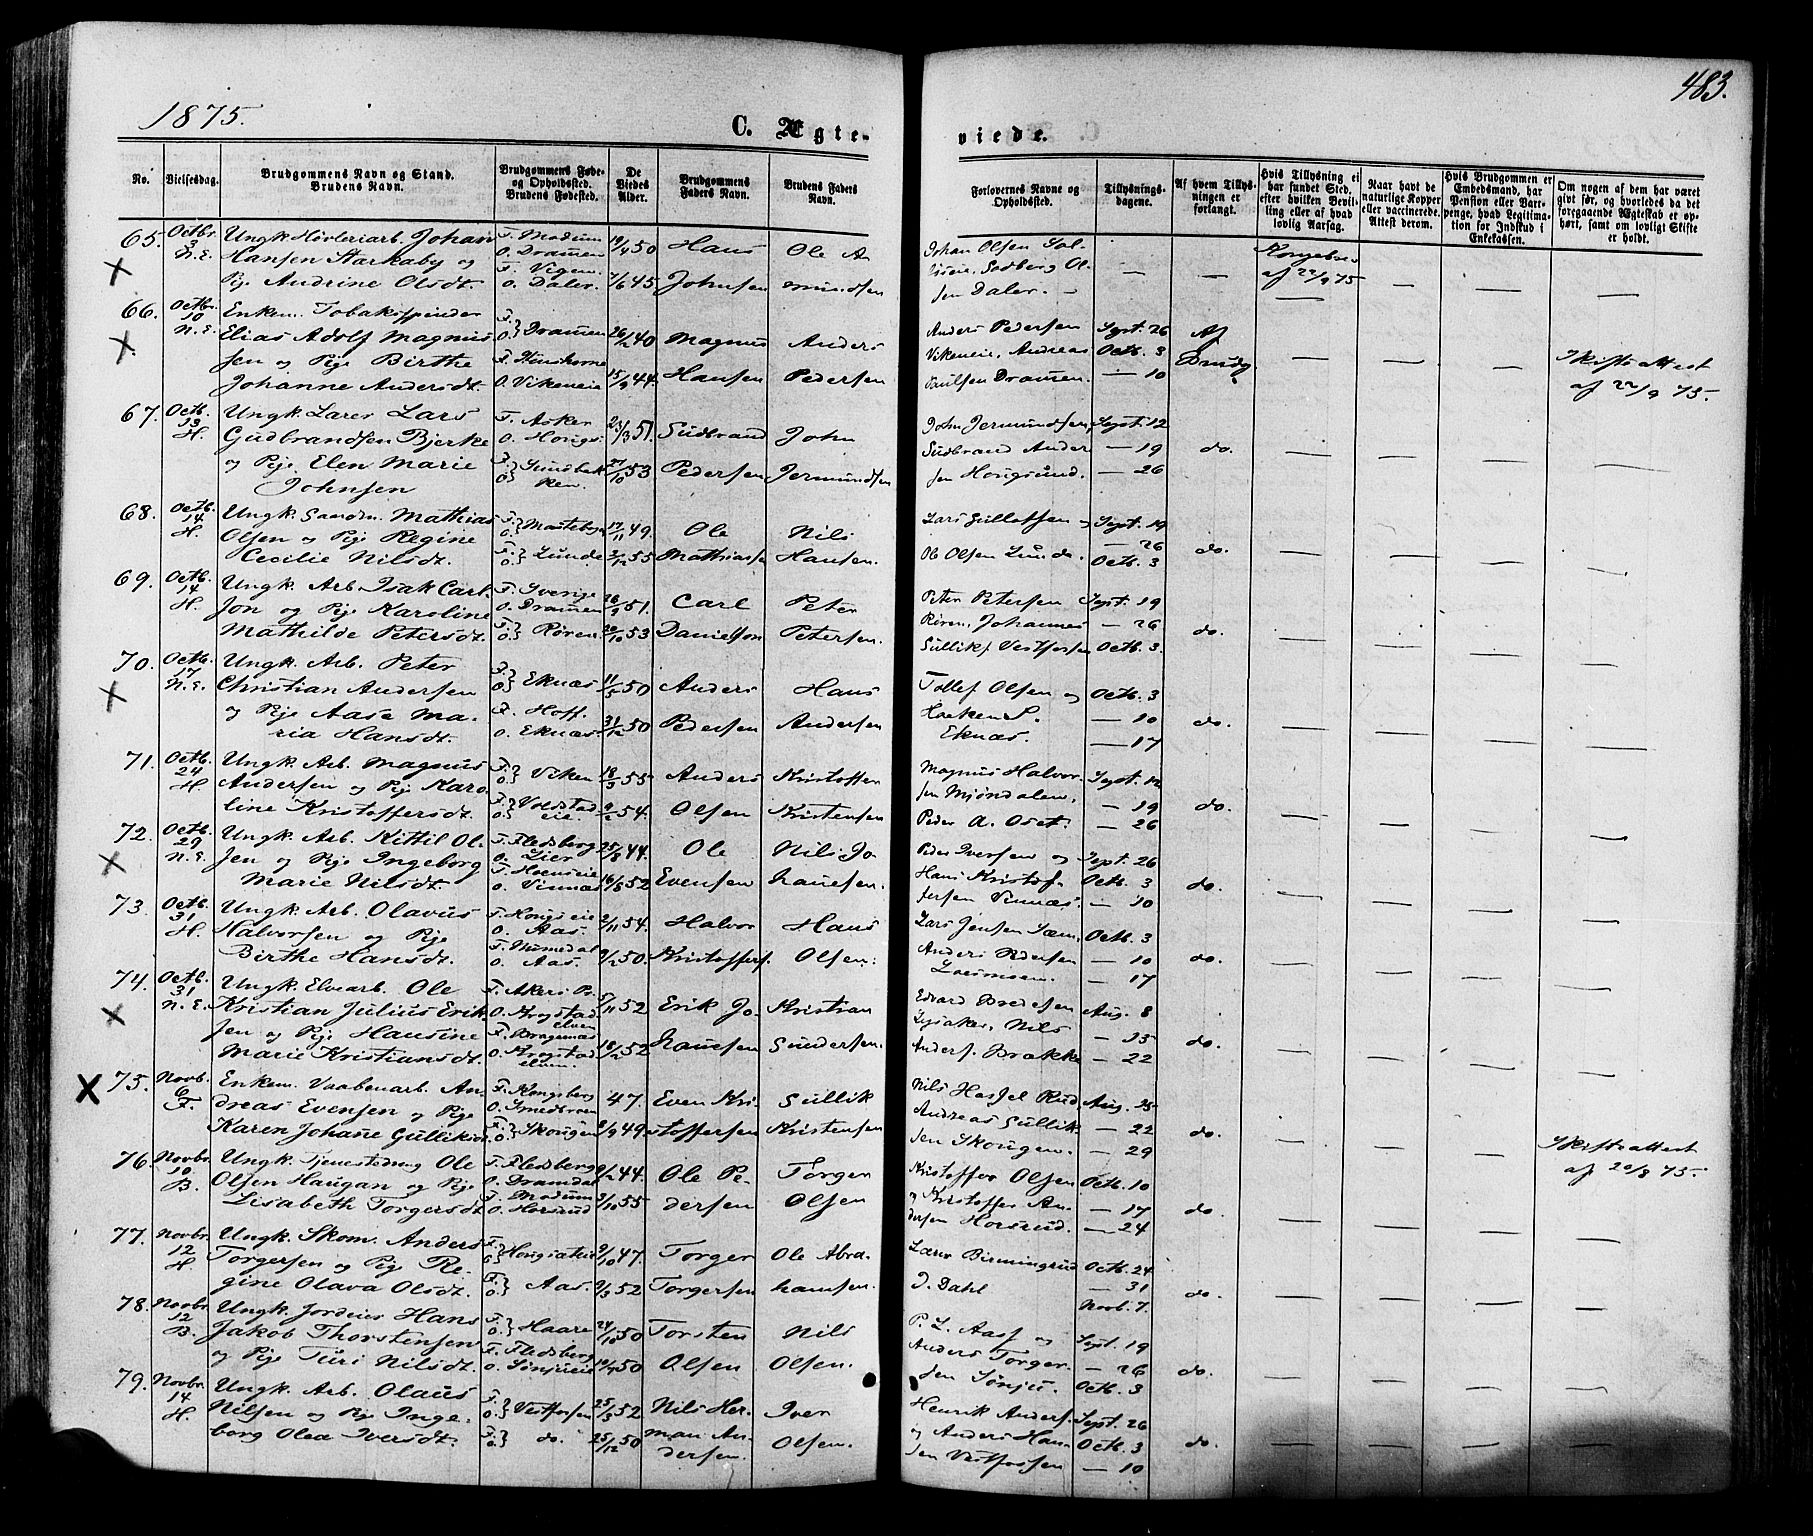 1875.
483.
C. Ægte-
viede.
No.
Vielsesdag.
Brudgommens Navn og Stand.
Brudens Navn.
Brudgommens Føde-
og Opholdssted.
Brudens Fødested.
De
Viedes
Alder.
Brudgommens
Faders Navn.
Brudens Faders
Navn.
Forlovernes Navne og
Opholdssted.
Tillysnings-
dagene.
Af hvem Tillys-
ningen er
forlangt.
Hvis Tillysning ei
har fundet Sted,
efter hvilken Bevil-
ling eller af hvad
lovlig Aarsag.
Naar havt de
naturlige Kopper
eller vaccinerede.
Attest derom.
Hvis Brudgommen er
Embedsmand, har
Pension eller Vart-
penge, hvad Legitima-
tion for Indskud i
Enkekassen.
Om nogen af dem har været
givt før, og hvorledes da det
foregaaende Ægteskab er op-
hørt, samt om lovligt Skifte
er holdt.
65. Octbr. 3 N.E. Ungk. Høvleriarb. Johan
Hansen Starkaby og
Pige Andrine Olsdt.
F. Modum
O. Dramen
O. Daler.
19/4 50
7/6 45
Hans
Johnsen
Ole A
mundsen
Johan Olsen
Olsen Daler.
af 22/9 75
66. Octbr. 10 N.E. Enkem. Tobakspinder
Elias Adolf Magnus
sen og Pige Birthe
Johanne Andersdt.
F. O. Dramen
O. Vikeneie
26/2 40
15/9 44.
Magnus
Hansen
Anders
Pedersen
Anders Pedersen
Vikeneie, Andreas
Paulsen Dramen.
Sept. 26
Octb. 3
— 10
Af
Brudg.
Skifteattest
af 22/9 75.
67. Octb. 13 H. Ungk. Larer Lars
Gudbrandsen Bjerke
og Pige Elen Marie
Johnsen
F. Asker
23/3 51.
27/10 53
Gudbrand
Pedersen
John
Jermundsen
John Jermundsen,
Gudbrand Ander
sen Hougsund.
Sept. 12
— 19
— 26
do.
68. Octb. 14 H. Ungk. Mathias
Olsen og Pige Regine
Cecilie Nilsdt.
F. O. Lunde
17/11 49.
2/12 55
Ole
Mathiassen
Nils
Hansen.
Lars Gullotsen og
Ole Olsen Lunde.
Sept. 19
— 26
Octb. 3
do.
69. Octb. 14 H. Ungk. Arb. Isak Carl
son og Pige Karoline
Mathilde Petersdt.
F. Sverige
O. Dramen
F. O. Røren
26/9 51.
20/10 53
Carl
Danielson
Peter
Petersen.
Peter Petersen
Røren, Johannes
Gulliks. Vestfossen
Sept. 19
— 26
Octb. 3.
do.
70. Octb. 17 N.E. Ungk. Arb. Peter
Christian Andersen
og Pige Aase Ma-
ria Hansdt.
F. O. Eknæs
F. Hoff.
O. Eknæs
11/5 50
31/12 50
Anders
Pedersen
Hans
Andersen
Tollef Olsen og
Haaken S.
Eknæs.
Octb. 3
— 10
— 17
do.
71. Octb. 24 H Ungk. Arb. Magnus
Andersen og Pige Karo
line Kristoffersdt.
F. O. Viken
F. O. Voldstad
eie.
18/3 55
9/2 54.
Anders
Olsen
Kristoffer
Kristensen
Magnus Halvor
sen Mjøndalen,
Peder A. Oset.
Sept. 12
— 19
— 26
do.
72. Octb. 29 N.E. Ungk. Arb. Kittil Ol
sen og Pige Ingeborg
Marie Nilsdt.
F. Flesberg
O. Lier
F. Hoenseie
O. Vinnæs
25/8 44.
16/8 52
Ole
Evensen
Nils Jo
hanesen.
Peder Iversen og
Hans Kristof-
fersen Vinnæs.
Sept. 26
Octb. 3
— 10
do.
73. Octb. 31 H. Ungk. Arb. Olavus
Halvorsen og Pige
Birthe Hansdt.
F. Hougseie
O. Aas.
F. Numedal
O. Aas.
2/11 54.
9/2 50.
Halvor
Kristoffers.
Hans
Olsen.
Lars Jensen Sæm,
Anders Pedersen
Octb. 3
— 10
— 17
do.
74. Octb. 31 N.E. Ungk. Elvearb. Ole
Kristian Julius Erik
sen og Pige Hansine
Marie Kristiansdt.
F. Akers Pr.
O. Krogstad
elven
F. Bragernæs
O. Krogstad
elven.
5/11 52
18/2 52
Erik Jo-
hanesen
Kristian
Gundersen.
Edvard Bredesen
Lysaker, Nils
Anders. Brakke
Aug. 8
— 15
— 22
do.
75. Novb. 6 F. Enkem. Vaabenarb. An-
dreas Evensen og Pige
Karen Johane Gulliksdt.
F. Kongsberg
F. O. Skougen
47.
2/9 49.
Even Kri-
stoffersen
Gullik
Kristensen
Nils Hassel Rud,
Andreas Gullik
sen Skougen.
Aug. 15
— 22
— 29
do.
Skifteattest
af 20/8 75.
76. Novbr. 10. B. Ungk. Tjenestedreng Ole
Olsen Haugan og Pige
Lisabeth Torgersdt.
F. Flesberg
O. Dramdal
F. Modum
O. Horsrud
9/2 44.
3/10 55
Ole Pe-
dersen
Torger
Olsen
Kristoffer Olsen
og Kristoffer An-
dersen Horsrud.
Octb. 10
— 17
— 24
do.
77. Novbr. 12 H. Ungk. Skom. Anders
Torgersen og Pige Re-
gine Olava Olsdt.
F. O. Aas.
9/10 47.
9/3 52
Torger
Torgersen
Ole Abra-
hamsen.
Larer Birmingrud
J. Dahl
Octb. 24
— 31
Novb. 7.
do.
78. Novbr. 12 B. Ungk. Jordeier Hans
Jakob Thorstensen
og Pige Turi Nilsdt.
F. O. Haare
F. Flesberg
O. Sønjueie
24/10 50
19/7 50
Torsten
Olsen
Nils
Olsen.
P. L. Aass og
Anders Torger-
sen Sønju.
Sept. 19
— 26
Octb. 3
do.
79. Novbr. 14. H. Ungk. Arb. Olaus
Nilsen og Pige Inge-
borg Olea Iversdt.
F. O. Vestfossen
F. O. do.
25/3 52
25/12 50
Nils Her-
man An-
dersen.
Iver
Olsen.
Henrik Anders.
og Anders Han-
sen Vestfossen
Sept. 26
Octb. 3
— 10
do.